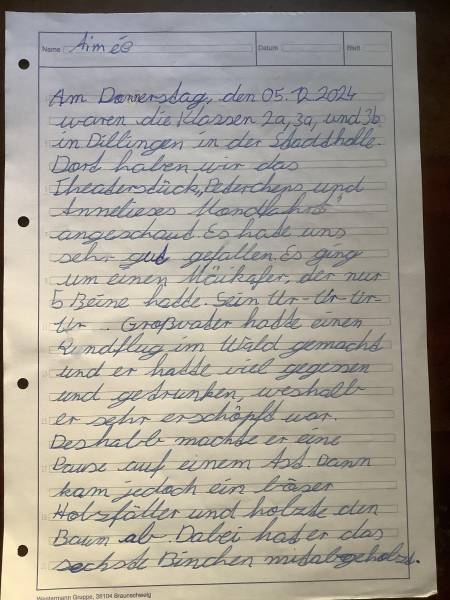 Name Aimée Datum Blatt
Am Donnerstag, den 05.12.2024
waren die Klassen 2a, 3a, und 3b
in Dillingen in der Stadthalle.
Dort haben wir das
Theaterstück „Peterchens und
Annelieses Mondfahrt"
angeschaut. Es hate uns
sehr gut gefallen. Es ging
um einen Maikäfer, der nur
5 Beine hatte. Sein Ur-Ur-Ur-
Ur - Großvater hatte einen
Rundflug im Wald gemacht
und er hatte viel gegessen
und getrunken, weshalb
er sehr erschöpft war.
Deshalb machte er eine
Pause auf einem Ast. Dann
kam jedoch ein böser
Holzfäller und holzte den
Baum ab. Dabei hat er das
sechste Binchen mitabgeholzt.
Westermann Gruppe, 38104 Braunschweig